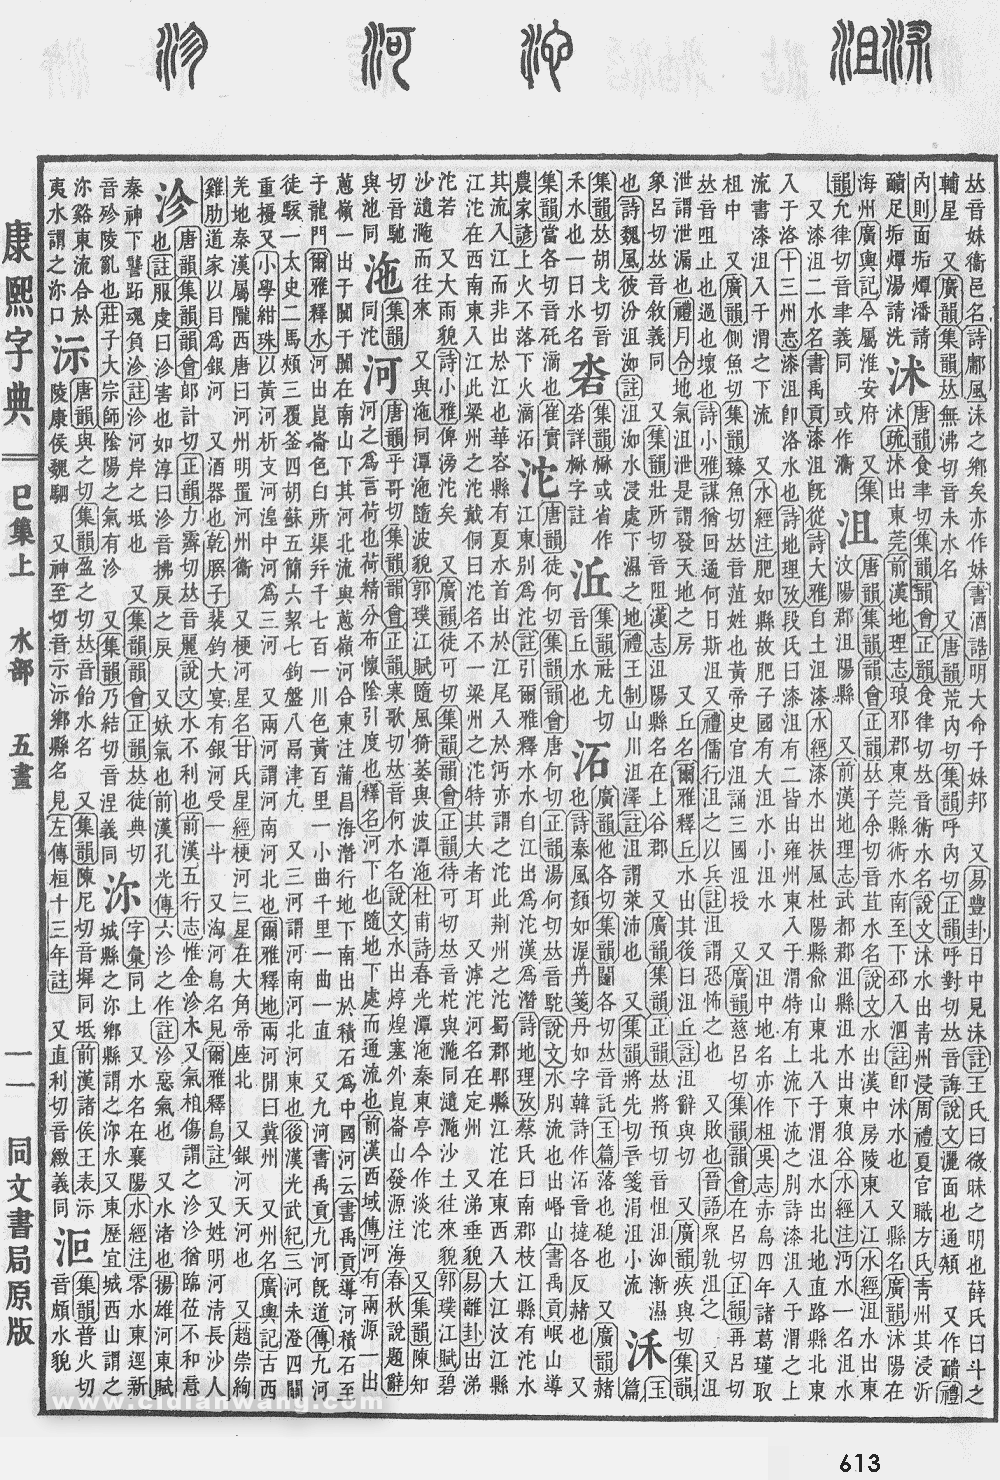 𠀤音妹衞邑名詩鄘風沬之鄉矣亦作妹書酒誥明大命于妹邦 又易豐卦日中見沬註王氏曰微昧之明也薛氏曰斗之
輔星 又廣韻集韻𠀤無沸切音未水名 又唐韻荒內切集韻呼內切正韻呼對切𠀤音誨說文灑面也通頮 又作靧禮
內則面垢燂潘請
靧足垢燂湯請洗
沭
唐韻食聿切集韻韻會正韻食律切𠀤音術水名說文沭水出靑州浸周禮夏官職方氏靑州其浸沂
沭疏沭出東莞前漢地理志琅邪郡東莞縣術水南至下邳入泗註卽沭水也 又縣名廣韻沭陽在
海州廣輿記今屬淮安府 又集
韻允律切音聿義同 或作潏
沮
唐韻集韻韻會正韻𠀤子余切音苴水名說文水出漢中房陵東入江水經沮水出東
汶陽郡沮陽縣 又前漢地理志武都郡沮縣沮水出東狼谷水經注沔水一名沮水
又漆沮二水名書禹貢漆沮旣從詩大雅自土沮漆水經漆水出扶風杜陽縣兪山東北入于渭沮水出北地直路縣北東
入于洛十三州志漆沮卽洛水也詩地理攷段氏曰漆沮有二皆出雍州東入于渭特有上流下流之別詩漆沮入于渭之上
流書漆沮入于渭之下流 又水經注肥如縣故肥子國有大沮水小沮水 又沮中地名亦作柤吳志赤烏四年諸葛瑾取
柤中 又廣韻側魚切集韻臻魚切𠀤音菹姓也黃帝史官沮誦三國沮授 又廣韻慈呂切集韻韻會在呂切正韻再呂切
𠀤音咀止也遏也壞也詩小雅謀猶回遹何日斯沮又禮儒行沮之以兵註沮謂恐怖之也 又敗也晉語衆孰沮之 又沮
泄謂泄漏也禮月令地氣沮泄是謂發天地之房 又丘名爾雅釋丘水出其後曰沮丘註沮辭與切 又廣韻疾與切集韻
象呂切𠀤音敘義同 又集韻壯所切音阻漢志沮陽縣名在上谷郡 又廣韻集韻正韻𠀤將預切音怚沮洳漸濕
也詩魏風彼汾沮洳註沮洳水浸處下濕之地禮王制山川沮澤註沮謂萊沛也 又集韻將先切音箋涓沮小流
玉
篇
集韻𠀤胡戈切音
禾水也一曰水名
沯
集韻或省作
沯詳字註
集韻祛尤切
音丘水也
沰
廣韻他各切集韻闥各切𠀤音託玉篇落也磓也 又廣韻赭
也詩秦風顏如渥丹箋丹如字韓詩作沰音撻各反赭也 又
集韻當各切音矺滴也崔實
農家諺上火不落下火滴沰
沱
唐韻徒何切集韻韻會唐何切正韻湯何切𠀤音駝說文水別流也出山書禹貢岷山導
江東別爲沱註引爾雅釋水水自江出爲沱漢爲潛詩地理攷蔡氏曰南郡枝江縣有沱水
其流入江而非出於江也華容縣有夏水首出於江尾入於沔亦謂之沱此荆州之沱蜀郡郫縣江沱在東西入大江汶江縣
江沱在西南東入江此梁州之沱戴侗曰沱名不一梁州之沱特其大者耳 又滹沱河名在定州 又涕垂貌易離卦出涕
沱若 又大雨貌詩小雅俾滂沱矣 又廣韻徒可切集韻韻會正韻待可切𠀤音柁與㴰同㵝㴰沙土往來貌郭璞江賦碧
沙㵝㴰而往來 又與沲同潭沲隨波貌郭璞江賦隨風猗萎與波潭沲杜甫詩春光潭沲秦東亭今作淡沱 又集韻陳知
切音馳
與池同
沲
集韻
同沱
河
唐韻乎哥切集韻韻會正韻寒歌切𠀤音何水名說文水出焞煌塞外崑崙山發源注海春秋說題辭
河之爲言荷也荷精分布懷陰引度也釋名河下也隨地下處而通流也前漢西域傳河有兩源一出
蔥嶺一出于闐于闐在南山下其河北流與蔥嶺河合東注蒲昌海潛行地下南出於積石爲中國河云書禹貢導河積石至
于龍門爾雅釋水河出崑崙色白所渠幷千七百一川色黃百里一小曲千里一曲一直 又九河書禹貢九河旣道傳九河
徒駭一太史二馬頰三覆釜四胡蘇五簡六絜七鉤盤八鬲津九 又三河謂河南河北河東也後漢光武紀三河未澄四關
重擾又小學紺珠以黃河析支河湟中河爲三河 又兩河謂河南河北也爾雅釋地兩河閒曰冀州 又州名廣輿記古西
羌地秦漢屬隴西唐曰河州明置河州衞 又梗河星名甘氏星經梗河三星在大角帝座北 又銀河天河也 又趙崇絢
雞肋道家以目爲銀河 又酒器也乾𦠆子裴鈞大宴有銀河受一斗 又淘河鳥名見爾雅釋鳥註 又姓明河淸長沙人
沴
唐韻集韻韻會郎計切正韻力霽切𠀤音麗說文水不利也前漢五行志惟金沴木又氣相傷謂之沴沴猶臨莅不和意
也註服虔曰沴害也如淳曰沴音拂戾之戾 又妖氣也前漢孔光傳六沴之作註沴惡氣也 又水渚也揚雄河東賦
秦神下讋跖魂負沴註沴河岸之坻也 又集韻韻會正韻𠀤徒典切
音殄陵亂也莊子大宗師陰陽之氣有沴 又集韻乃結切音涅義同
沵
字彙同上 又水名在襄陽水經注零水東逕新
城縣之沵鄉縣謂之沵水又東歷宜城西山謂之
沵谿東流合於
夷水謂之沵口
沶
唐韻與之切集韻盈之切𠀤音飴水名 又集韻陳尼切音墀同坻前漢諸侯王表沶
陵康侯魏駟 又神至切音示沶鄉縣名見左傳桓十三年註 又直利切音緻義同
集韻普火切
音頗水貌
康熙字典
巳集上 水部 五畫
一一
同文書局原版
www.cidianwang.com
613